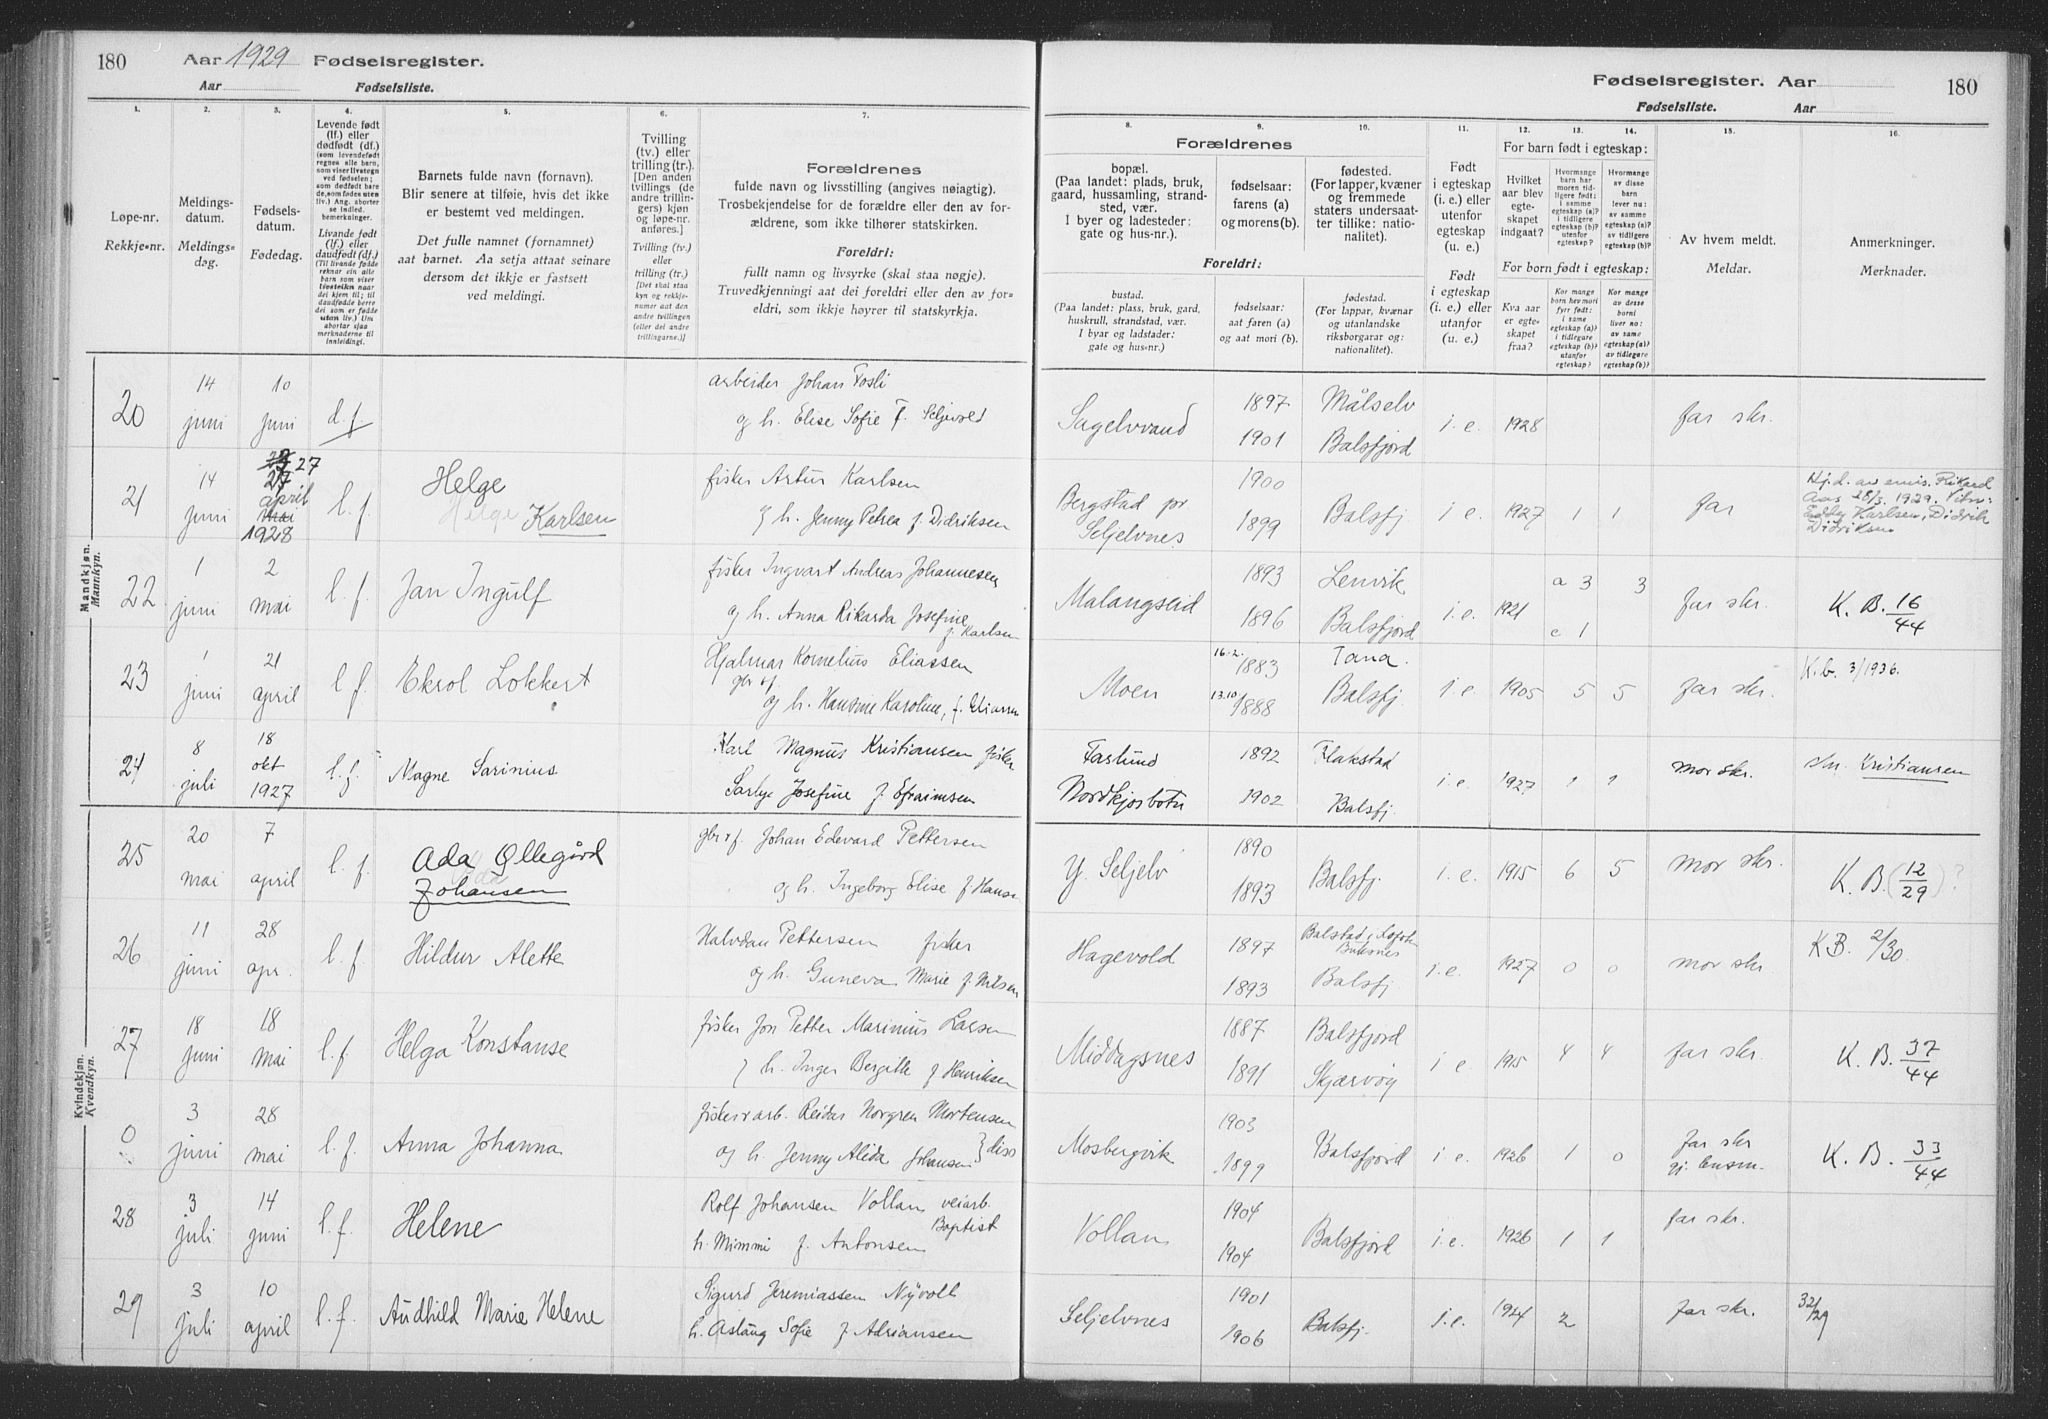 180 Aar 1929 Fødselsregister.
Aar Fødselsliste.
Fødselsregister. Aar 180
Fødselsliste. Aar
1. 2. 3. 4. 5. 6. 7.
8. 9. 10. 11. 12. 13. 14. 15. 16.
Løpe-nr.
Rekkje-nr.
Meldings-
datum.
Meldings-
dag.
Fødsels-
datum.
Fødedag.
Levende født
(lf.) eller
dødfødt (df.)
(som levendefødt
regnes alle barn,
som viser livstegn
ved fødselen;
som dødfødt bare
de, som fødes uten
liv.) Ang. aborter
se indled.
bemerkninger.
Livande født
(lf.) eller
daudfødt (df.)
(Til livande fødde
reknar ein alle
barn som viser
livsteikn naar
dei kjem til; til
daudfødde berre
dei som er fødde
utan liv.) Um
abortar sjaa
merknaderne til
innleidingi.
Barnets fulde navn (fornavn).
Blir senere at tilføie, hvis det ikke
er bestemt ved meldingen.
Det fulle namnet (fornamnet)
aat barnet. Aa setja attaat seinare
dersom det ikkje er fastsett
ved meldingi.
Tvilling
(tv.) eller
trilling (tr.).
[Den anden
tvillings (de
andre trillin-
gers) kjøn
og løpe-nr.
anføres.]
Tvilling (tv.)
eller
trilling (tr.)
[Det skal staa
kyn og rekkje-
numer aat den
andre tvillingen
(eller dei andre
trillingarne.)]
Forældrenes
fulde navn og livsstilling (angives nøiagtig).
Trosbekjendelse for de forældre eller den av for-
ældrene, som ikke tilhører statskirken.
Foreldri:
fullt namn og livsyrke (skal staa nøgje).
Truvedkjenningi aat dei foreldri eller den av for-
eldri, som ikkje høyrer til statskyrkja.
Forældrenes
bopæl.
(Paa landet: plads, bruk,
gaard, hussamling, strand-
sted, vær.
I byer og ladesteder:
gate og hus-nr.).
fødselsaar:
farens (a)
og morens (b).
fødested.
(For lapper, kvæner
og fremmede
staters undersaat-
ter tillike: natio-
nalitet).
Foreldri:
bustad.
(Paa landet: plass, bruk, gard,
huskrull, strandstad, vær.
I byar og ladstader:
gate og hus-nr.)
fødselsaar:
aat faren (a)
og aat mori (b).
fødestad.
(For lappar, kvænar
og utanlandske
riksborgarar og:
nationalitet).
Født
i egteskap
(i. e.) eller
utenfor
egteskap
(u. e.)
Født
i egteskap
(i. e.) eller
utanfor
(u. e.)
For barn født i egteskap:
Hvilket
aar blev
egte-
skapet
indgaat?
Hvormange
barn har
moren tid-
ligere født:
i samme
egteskap (a)?
i tidligere
egteskap (b)?
utenfor
egteskap?
Hvormange
av disse
barn
lever nu:
av samme
egteskap (a)?
av tidligere
egteskap (b)?
For born født i egteskap:
Kva aar
er egte-
skapet
fraa?
Kor mange
born hev mori
fyrr født:
i same
egteskap (a)?
i tidlegare
egteskap (b)?
utanfor
egteskap?
Kor mange
av desse
borni
liver no:
av same
egteskap (a)?
av tidlegare
egteskap (b)?
Av hvem meldt.
Meldar.
Anmerkninger.
Merknader.
Mandkjøn.
Mannkyn.
20 14 juni 10 juni d.f
arbeider Johan Fosli
og h. Elise Sofie f.
Sagelvvand 1897 Målselv 1901 Balsfjord i.e. 1928 far skr.
21 14 juni 27 27 april mai 1928 l.f. Helge
Helge Karlsen
fisker Artur Karlsen
h. Jenny Petrea f. Didriksen
Bergstad pr Seljelvnes 1900 1899 Balsfj i.e. 1927 1 1 far
Hj.d. av emis. Rikard
Aas 28/3. 1929. Vitn:
Eddy Karlsen, Didrik
Didriksen
22 1 juni 2 mai l.f. Jan Ingulf
fisker Ingvart Andreas Johannesen
og h. Anna Rikarda Josefine
f. Karlsen
Malangseid 1893 Lenvik 1896 Balsfjord i.e. 1921 a 3 3 c 1 far skr. K. B. 16/44
23 1 juni 21 april l.f. Ekrol Lokkert
Hjalmar Kornelius Eliassen
gbr & f.
og h. Hansine Karoline, f. Eliassen
Moen 16.2. 1883 Tana. 13.10 1888 Balsfj. i.e. 1905 5 5 far skr. K.b. 3/1936.
24 8 juli 18 okt 1927 l.f. Magne Sarinius
Karl Magnus Kristiansen fisker
Josefine f. Efraimsen
Nordkjosbotn 1892 Flakstad 1902 Balsfj. i.e. 1927 1 1 mor skr. Kristiansen
Kvindekjøn.
Kvendkyn.
25 20 mai 7 april l.f. Ada Øllegård
Johansen
gbr & f. Johan Edevard Pettersen
og h. Ingeborg Elise f Hansen
Y. Seljelv 1890 1893 Balsfj. i.e. 1915 6 5 mor skr. K. B. (12/29)?
26 11 juni 28 apr. l.f. Hildur Alette
Halvdan Pettersen fisker
og h. Guneva Marie f. Nilsen
Hagevold 1897 Balstad, Lofoten
Buksnes 1893 Balsfj i.e. 1927 0 0 mor skr KB. 2/30.
27 18 juni 18 mai l.f. Helga Konstanse
fisker Jon Petter Marinius Larsen
h. Inger Bergitte f Henriksen
Middagsnes 1887 Balsfjord 1891 Skjærvøy i e. 1915 4 4 far skr. K. B. 37/44
0 3 juni 28 mai l.f. Anna Johanna
fisker & arb. Reidar Norgren Mortensen
og h. Jenny Alida Johansen } diss
Mosbergvik 1903 1899 Balsfjord i.e. 1926 1 0 far skr
gj. lensm. K. B. 33/44
28 3 juli 14 juni l.f. Helene
Rolf Johansen Vollan veiarb.
Baptist
h. Mimmi f. Antonsen
Vollan 1904 1904 Balsfjord i.e. 1926 1 1 far skr.
29 3 juli 10 april l.f. Audhild Marie Helene
Sigurd Jeremiassen Nyvoll
h. Aslaug Sofie f. Adriansen
Seljelvnes 1901 1906 Balsfj. i.e. 1924 2 far skr. 32/29